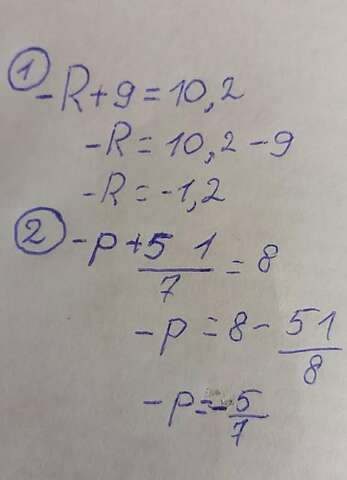 ① -R+9=10,2
-R=10,2-9
-R=-1,2
② -p+5 1/7=8
-p=8-51/8
-p=-5/7